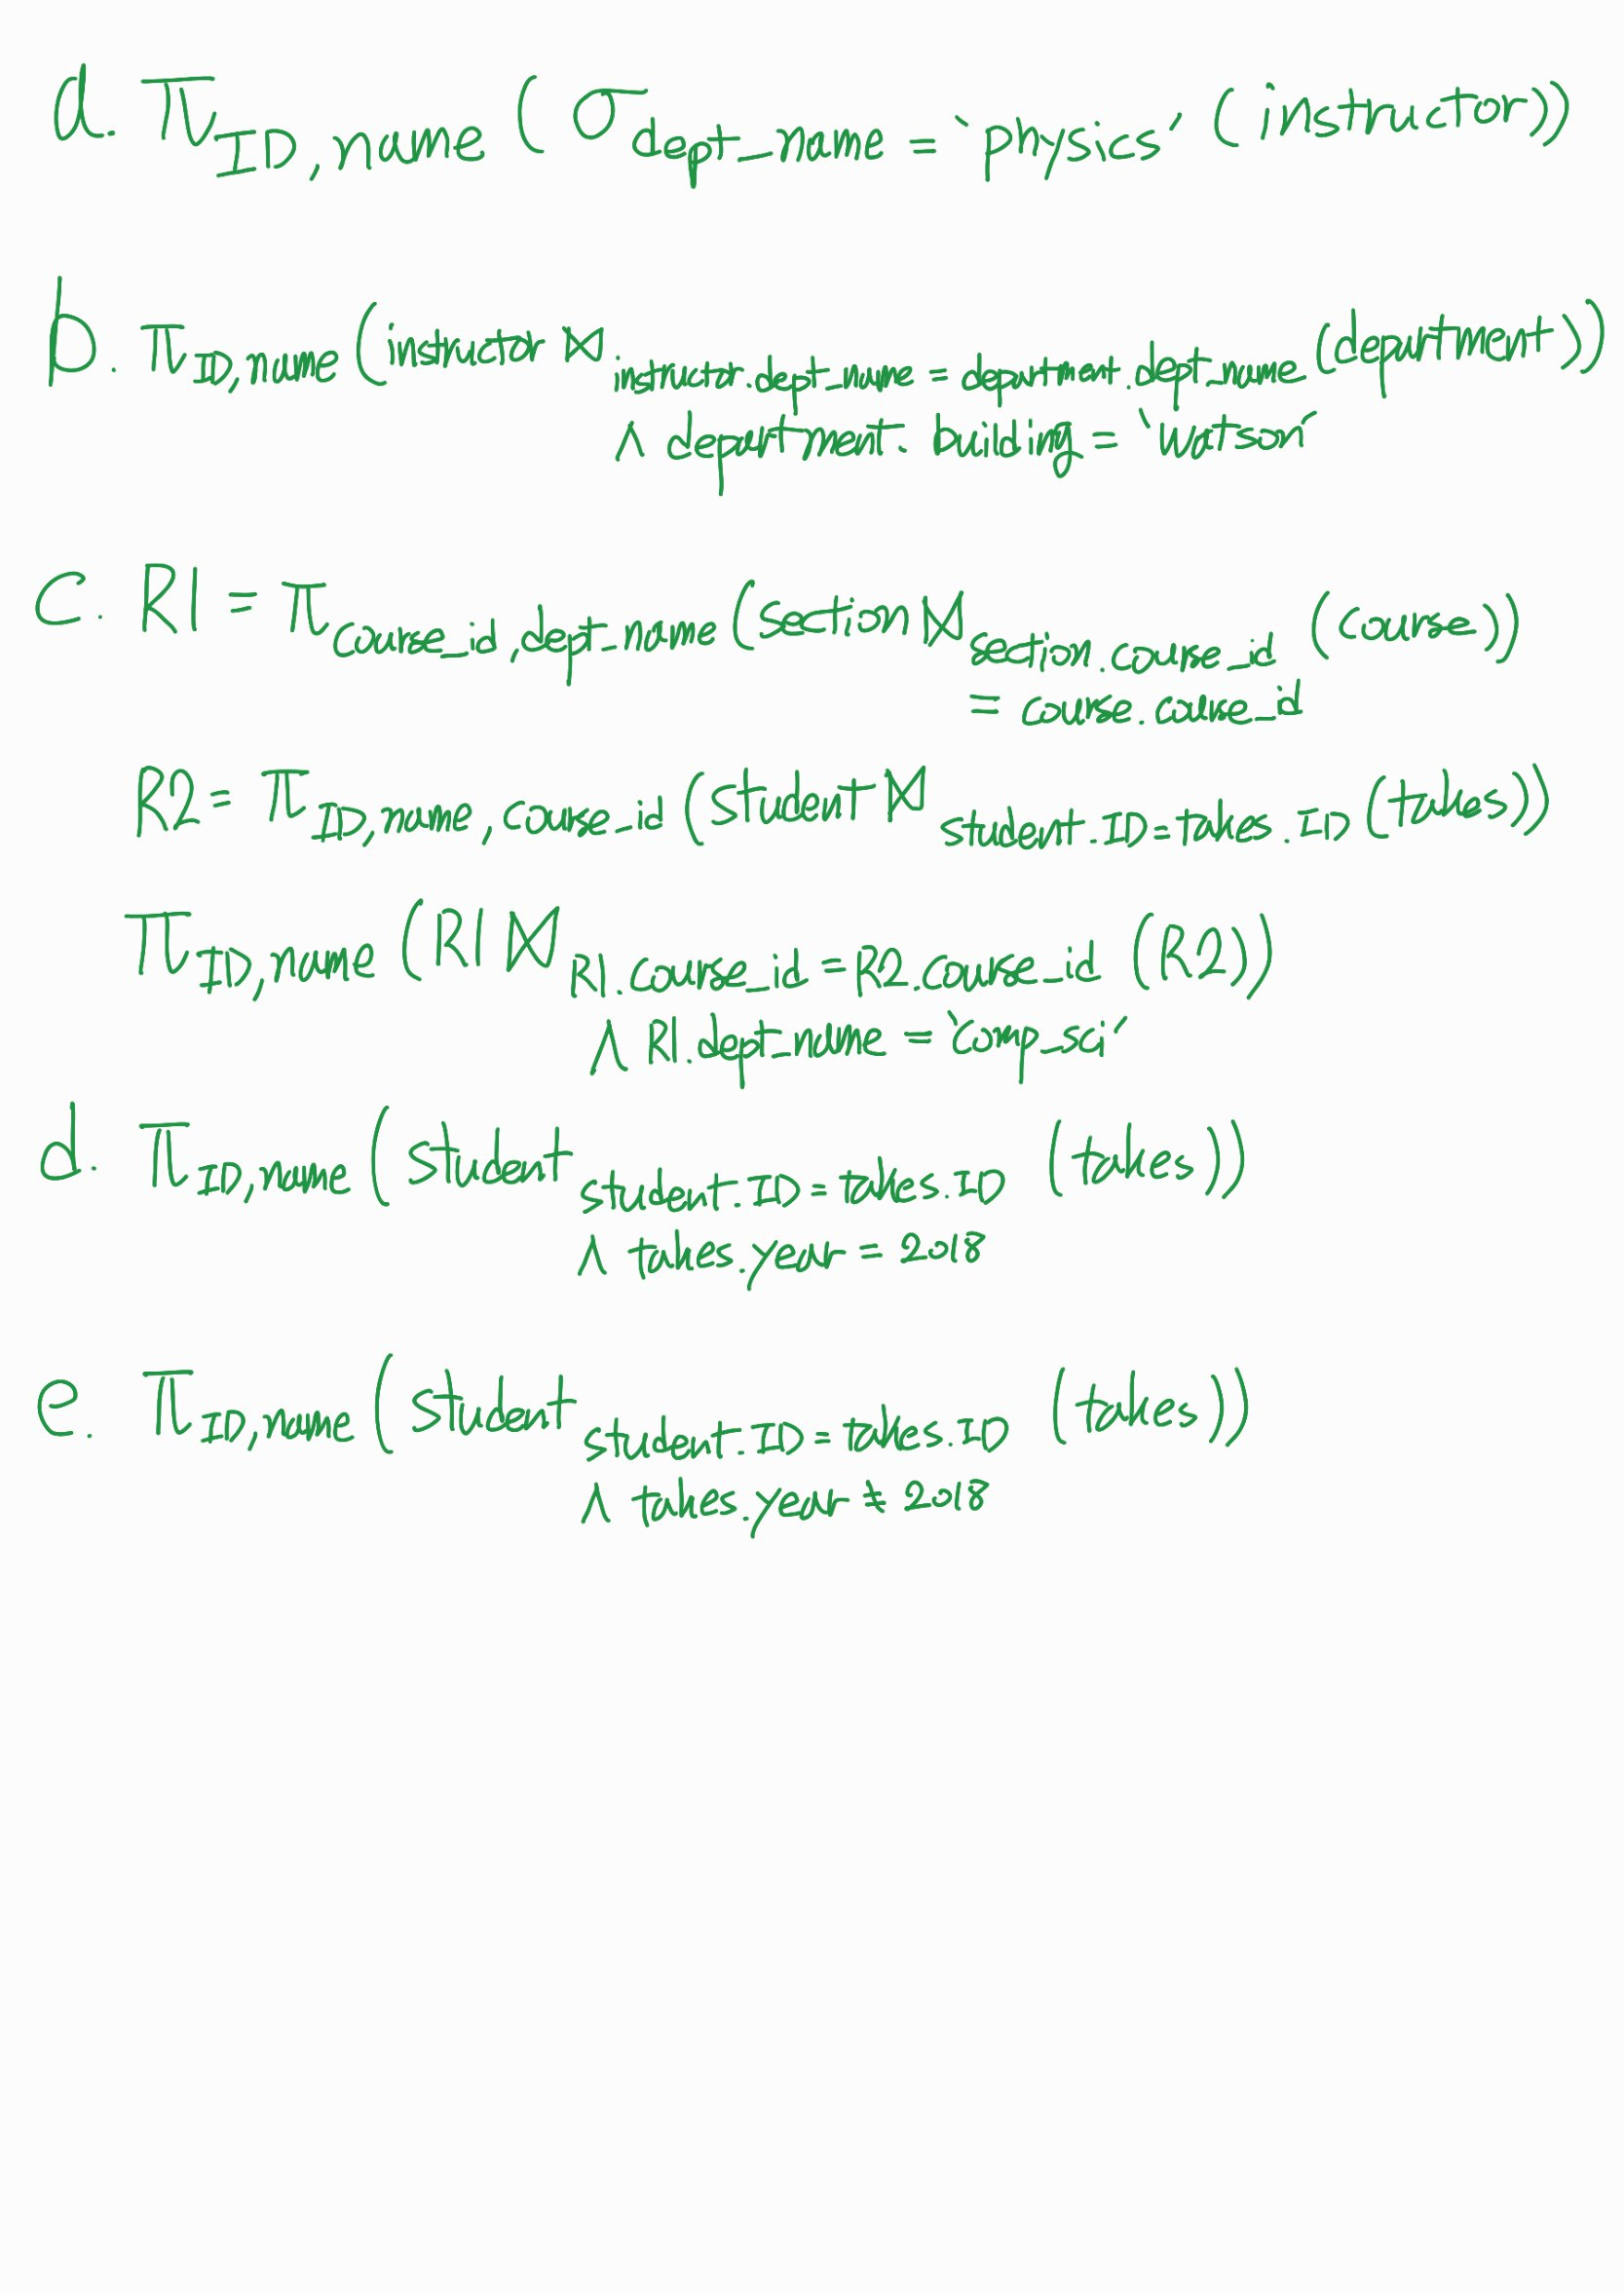 a. π ID, name ( σ dept_name = 'physics' ( instructor))
b. π ID, name (instructor ⋈ instructor.dept_name = department.dept_name (department))
∧ department. building = 'Watson'
c. R1 = π course_id, dept_name (section ⋈ section.course_id (course))
= course.course_id
R2 = π ID, name, course_id (student ⋈ student.ID = takes.ID (takes))
π ID, name (R1 ⋈ R1.course_id = R2.course_id (R2))
∧ R1.dept_name = 'comp_sci'
d. π ID, name (student student.ID = takes.ID (takes))
∧ takes.year = 2018
e. π ID, name (student student.ID = takes.ID (takes))
∧ takes.year ≠ 2018